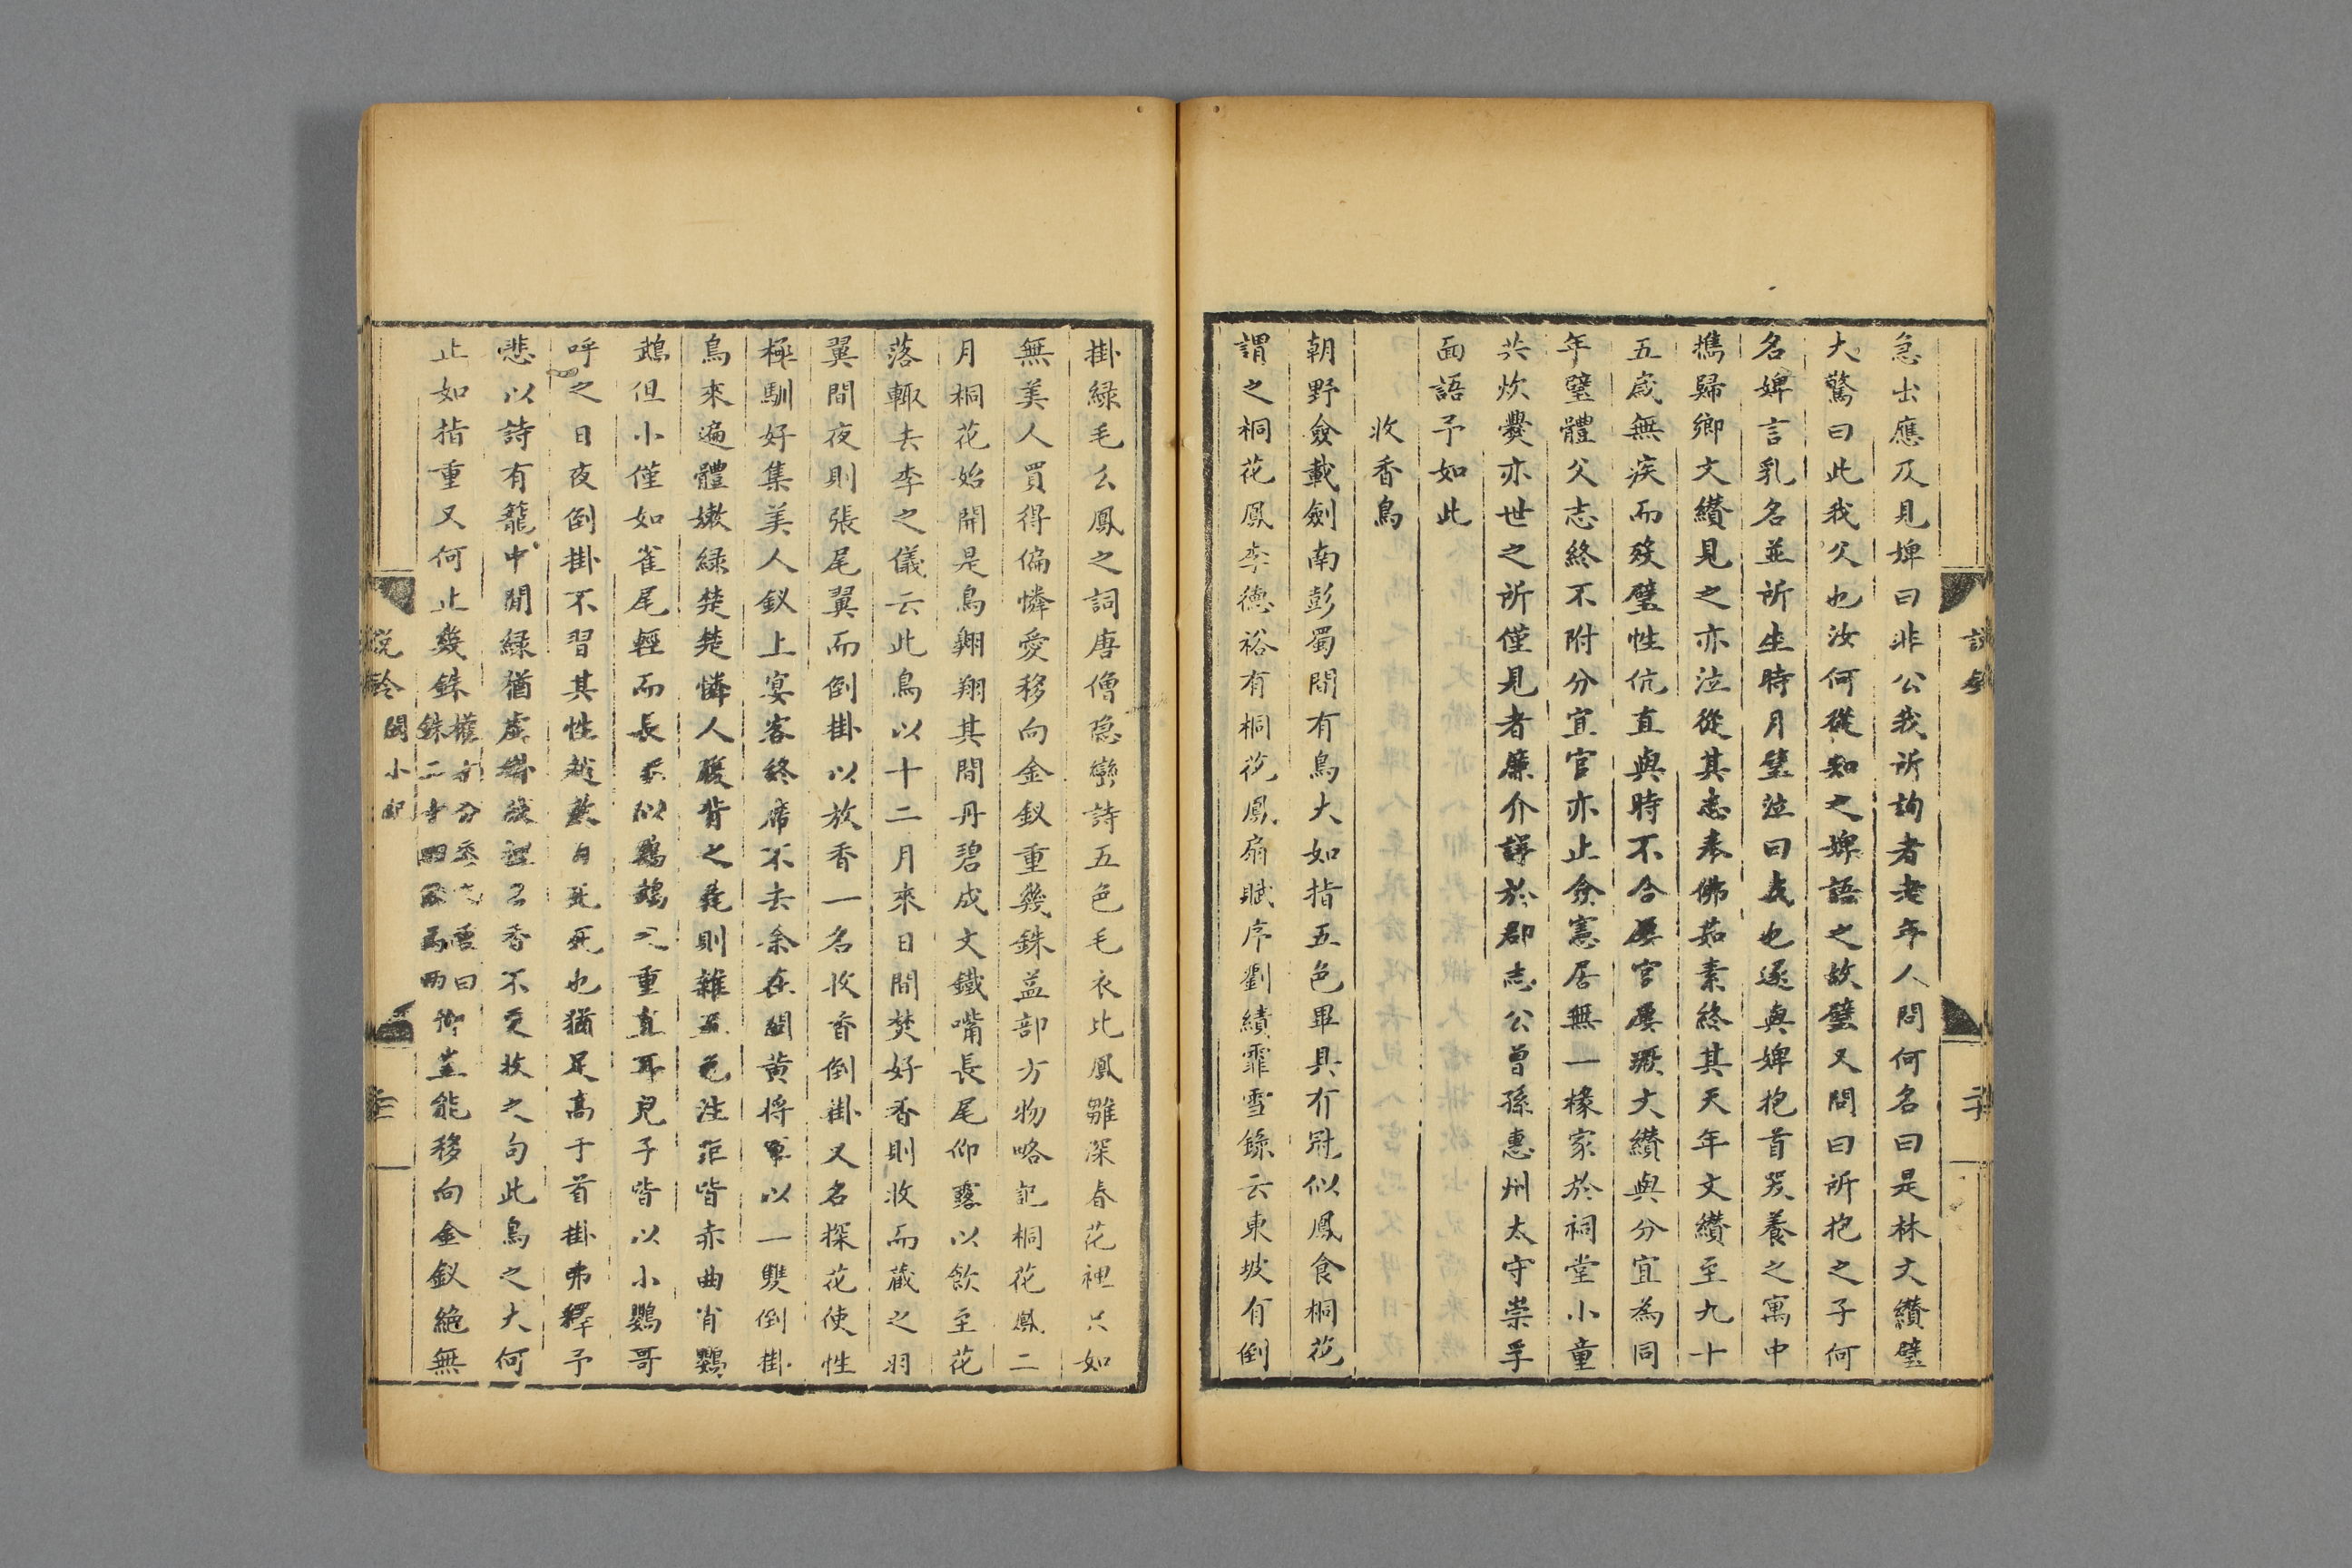 急出應及見婢曰非公我所詢者老年人問何名曰是林文纘璧
大驚曰此我父也汝何從知之婢語之故璧又問曰所抱之子何
名婢言乳名並所生時月璧泣曰我也遂與婢抱首哭養之寓中
攜歸鄉文纘見之亦泣從其志奉佛茹素終其天年文纘至九十
五歲無疾而歿璧性伉直與時不合屢官屢躓文纘與分宜為同
年璧體父志終不附分宜官亦止僉憲居無一椽家於祠堂小童
共炊爨亦世之所僅見者廉介詳於郡志公曾孫惠州太守崇孚
面語予如此
收香鳥
朝野僉載劍南彭蜀間有鳥大如指五色畢具有冠似鳳食桐花
謂之桐花鳳李德裕有桐花鳳扇賦序劉績霏雪錄云東坡有倒
掛綠毛么鳳之詞唐僧隱巒詩五色毛衣比鳳雛深春花裡只如
無美人買得偏憐愛移向金釵重幾銖益部方物略記桐花鳳二
月桐花始開是鳥翱翔其間丹碧成文鐵嘴長尾仰露以飲至花
落輒去李之儀云此鳥以十二月來日間焚好香則收而藏之羽
翼間夜則張尾翼而倒掛以放香一名收香倒掛又名探花使性
極馴好集美人釵上宴客終席不去余在閩黃將軍以一雙倒掛
鳥來遍體嫩綠楚楚憐人腹背之毛則雜五色注距皆赤曲喙鸚
鵡但小僅如雀尾輕而長
重直耳兒子皆以小鸚哥
呼之日夜倒掛不習其性越數日死死也猶足高于首掛弗釋予
悲以詩有籠中閒綠猶虛掛
香不更收之句此鳥之大何
止如指重又何止幾銖
豈能移向金釵絕無
說鈴 閩小紀